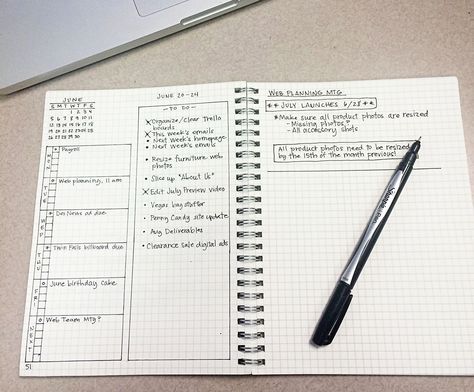 JUNE
S M T W T F S
1 2 3 4
5 6 7 8 9 10 11
12 13 14 15 16 17 18
19 20 21 22 23 24 25
26 27 28 29 30
MON
Payroll
TUE
Web planning, 11 am
WED
Dev News ad due
THU
Twin Falls billboard due
FRI
June birthday cake
NEXT
Web Team Mtg?
51
JUNE 20-24
TO DO
Organize/Clear Trello
boards
This week's emails
Next week's homepage
Next week's emails
Resize furniture web
photos
Slice up "About Us"
Edit July Preview video
Vegas bag stuffer
Penny Candy site update
Avg Deliverables
Clearance Sale digital ads
WEB PLANNING MTG
** JULY LAUNCHES 6/28 **
*Make sure all product photos are resized
-Missing photos?
-All accessory shots
All product photos need to be resized
by the 15th of the month previous!
Sharpie